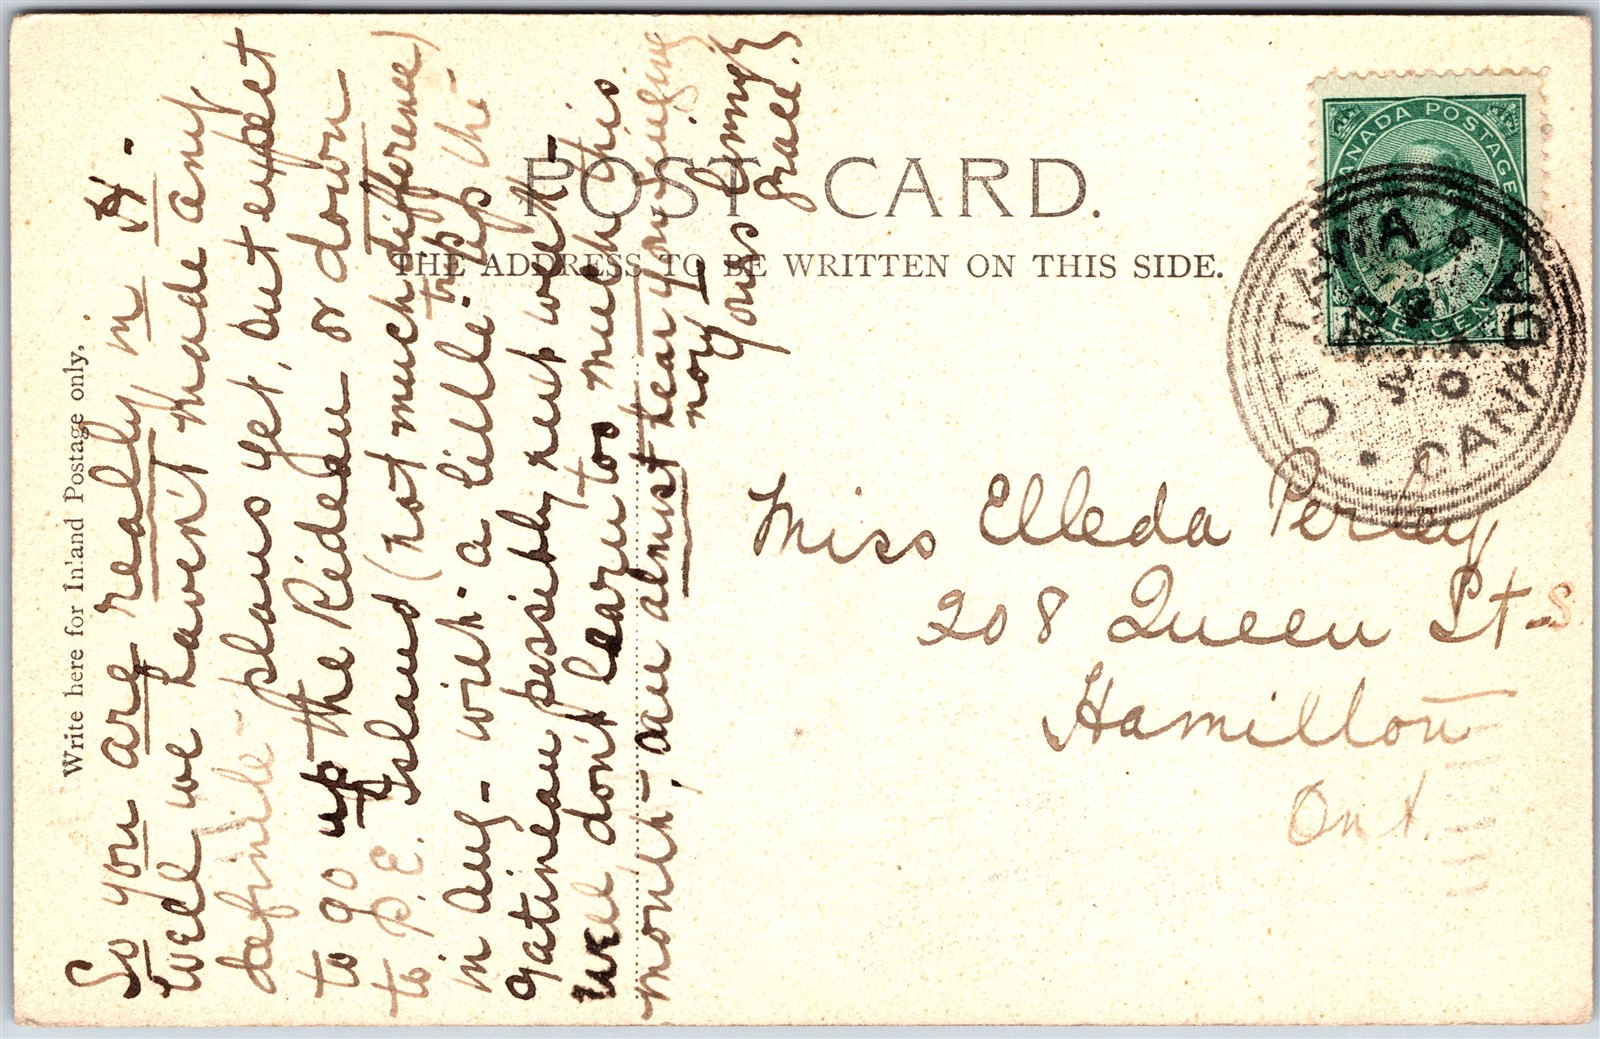 Write here for Inland Postage only.
POST CARD.
THE ADDRESS TO BE WRITTEN ON THIS SIDE.
CANADA POSTAGE
ONE CENT
OTTAWA
CANADA
So you are really in it.
Well we haven't made any
definite plans yet, but expect
to go up the Rideau or down
to P.E. Island (not much difference)
in Aug - with a little trip up the
Gatineau possibly next week -
Well don't learn too much this
month, one almost hear you
now
Yours
Grace.
Miss Elleda Perley
208 Queen St-S.
Hamilton
Ont.